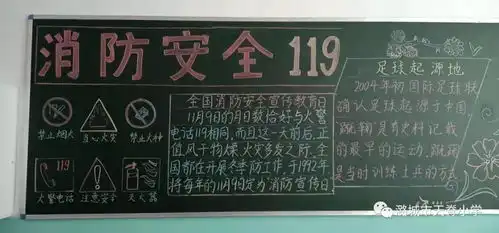 消防安全119
禁止烟火
当心火灾
禁止火种
119
火警电话
注意安全
灭火器
全国消防安全宣传教育日
11月9日的月日数恰好与火警
电话119相同,而且这一天前后,正
值风干物燥、火灾多发之际,全
国都在开展冬季防工作,于1992年
将每年的11月9日定为消防宣传日
足球起源地
2004年初国际足球联
确认足球起源于中国,
蹴鞠是有史料记载
的最早的运动,蹴鞠
是当时训练士兵的方式
潞城市天脊小学